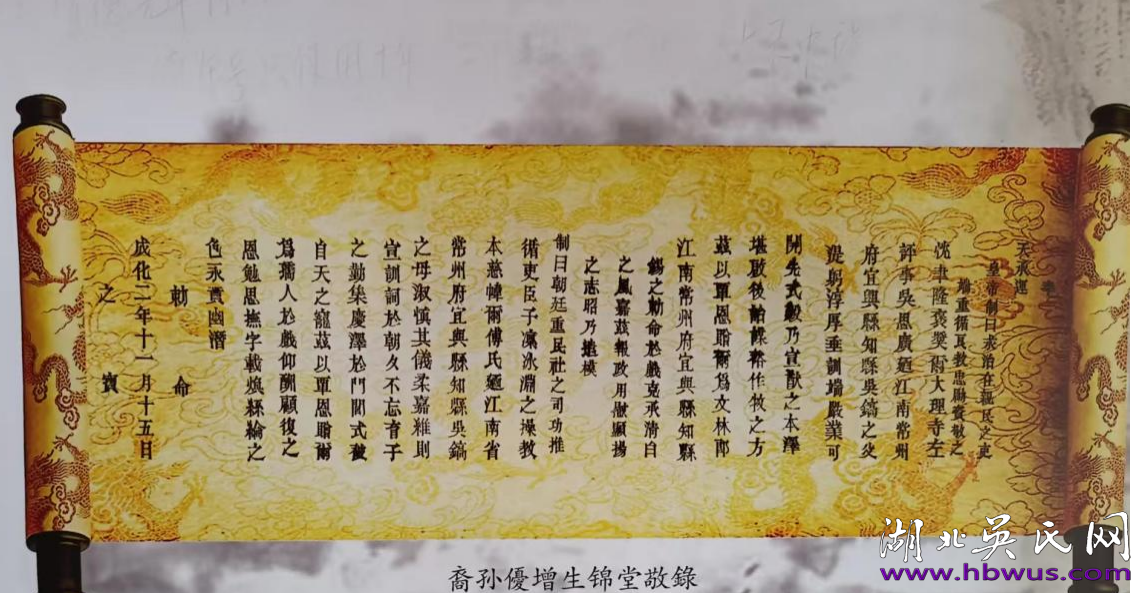 天承運
皇帝制曰求治在親民之吏
增重循良教忠勵資敬之
忱聿隆褒奬爾大理寺左
評事吳思廣廼江南常州
府宜興縣知縣吳鎬之父
提躬淳厚垂訓端嚴業可
開先式穀乃宣猷之本澤
堪啟後詒謀裕作牧之方
茲以覃恩貤爾爲文林郎
江南常州府宜興縣知縣
錫之勅命於戲克承清白
之風嘉茲報政用慰顯揚
之志昭乃遺模
制曰朝廷重民社之司功推
循吏臣子凜冰淵之操教
本慈幃爾傅氏廼江南省
常州府宜興縣知縣吳鎬
之母淑慎其儀柔嘉維則
宣訓詞於朝夕不忘育子
之勤集慶澤於門閭式被
自天之寵茲以覃恩貤爾
爲孺人於戲仰酬顧復之
恩勉思撫字載煥絲綸之
色永賁幽潛
勅命
成化二年十一月十五日
之寶
裔孙優增生锦堂敬録
湖北吴氏网
www.hbwus.com